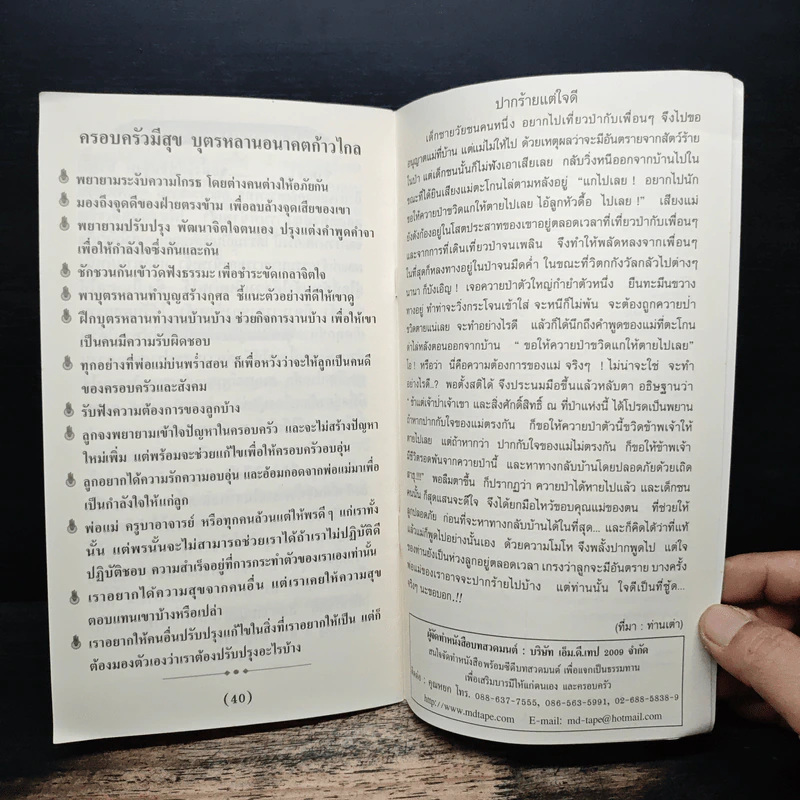 ครอบครัวมีสุข บุตรหลานอนาคตก้าวไกล
พยายามระงับความโกรธ โดยต่างคนต่างให้อภัยกัน
มองถึงจุดดีของฝ่ายตรงข้าม เพื่อลบล้างจุดเสียของเขา
พยายามปรับปรุง พัฒนาจิตใจตนเอง ปรุงแต่งคำพูดคำจา
เพื่อให้กำลังใจซึ่งกันและกัน
ชักชวนกันเข้าวัดฟังธรรมะ เพื่อชำระขัดเกลาจิตใจ
พาบุตรหลานทำบุญสร้างกุศล ชี้แนะตัวอย่างที่ดีให้เขาดู
ฝึกบุตรหลานทำงานบ้านบ้าง ช่วยกิจการงานบ้าง เพื่อให้เขา
เป็นคนมีความรับผิดชอบ
ทุกอย่างที่พ่อแม่บ่นพร่ำสอน ก็เพื่อหวังว่าจะให้ลูกเป็นคนดี
ของครอบครัวและสังคม
รับฟังความต้องการของลูกบ้าง
ลูกจงพยายามเข้าใจปัญหาในครอบครัว และจะไม่สร้างปัญหา
ใหม่เพิ่ม แต่พร้อมจะช่วยแก้ไขเพื่อให้ครอบครัวอบอุ่น
ลูกอยากได้ความรักความอบอุ่น และอ้อมกอดจากพ่อแม่มาเพื่อ
เป็นกำลังใจให้แก่ลูก
พ่อแม่ ครูบาอาจารย์ หรือทุกคนล้วนแต่ให้พรดีๆ แก่เราทั้ง
นั้น แต่พรนั้นจะไม่สามารถช่วยเราได้ถ้าเราไม่ปฏิบัติดี
ปฏิบัติชอบ ความสำเร็จอยู่ที่การกระทำตัวของเราเองเท่านั้น
เราอยากได้ความสุขจากคนอื่น แต่เราเคยให้ความสุข
ตอบแทนเขาบ้างหรือเปล่า
เราอยากให้คนอื่นปรับปรุงแก้ไขในสิ่งที่เราอยากให้เป็น แต่ก็
ต้องมองตัวเองว่าเราต้องปรับปรุงอะไรบ้าง
(40)
ปากร้ายแต่ใจดี
เด็กชายวัยซนคนหนึ่ง อยากไปเที่ยวป่ากับเพื่อนๆ จึงไปขอ
อนุญาตแม่ที่บ้าน แต่แม่ไม่ให้ไป ด้วยเหตุผลว่าจะมีอันตรายจากสัตว์ร้าย
ในป่า แต่เด็กชนนั้นก็ไม่ฟังเอาเสียเลย กลับวิ่งหนีออกจากบ้านไปใน
ขณะที่ได้ยินเสียงแม่ตะโกนไล่ตามหลังอยู่ "แกไปเลย ! อยากไปนัก
ขอให้ควายป่าขวิดแกให้ตายไปเลย ไอ้ลูกหัวดื้อ ไปเลย !" เสียงแม่
ยังดังก้องอยู่ในโสตประสาทของเขาอยู่ตลอดเวลาที่เที่ยวป่ากับเพื่อนๆ
และจากการที่เดินเที่ยวป่าจนเพลิน จึงทำให้พลัดหลงจากเพื่อนๆ
ในที่สุดก็หลงทางอยู่ในป่าจนมืดค่ำ ในขณะที่วิตกกังวลกลัวไปต่างๆ
นานา ก็บังเอิญ ! เจอควายป่าตัวใหญ่กำยำตัวหนึ่ง ยืนทะมึนขวาง
ทางอยู่ ทำท่าจะวิ่งกระโจนเข้าใส่ จะหนีก็ไม่พ้น จะต้องถูกควายป่า
ขวิดตายแน่เลย จะทำอย่างไรดี แล้วก็ได้นึกถึงคำพูดของแม่ที่ตะโกน
ด่าไล่หลังตอนออกจากบ้าน " ขอให้ควายป่าขวิดแกให้ตายไปเลย"
โอ ! หรือว่า นี่คือความต้องการของแม่ จริงๆ ! ไม่น่าจะใช่ จะทำ
อย่างไรดี..? พอตั้งสติได้ จึงประนมมือขึ้นแล้วหลับตา อธิษฐานว่า
" ข้าแต่เจ้าป่าเจ้าเขา และสิ่งศักดิ์สิทธิ์ ณ ที่ป่าแห่งนี้ ได้โปรดเป็นพยาน
ถ้าหากปากกับใจของแม่ตรงกัน ก็ขอให้ควายป่าตัวนี้ขวิดข้าพเจ้าให้
ตายไปเลย แต่ถ้าหากว่า ปากกับใจของแม่ไม่ตรงกัน ก็ขอให้ข้าพเจ้า
มีชีวิตรอดพ้นจากควายป่านี้ และหาทางกลับบ้านโดยปลอดภัยด้วยเถิด
สาธุ.!!!" พอลืมตาขึ้น ก็ปรากฏว่า ควายป่าได้หายไปแล้ว และเด็กซน
คนนั้น ก็สุดแสนจะดีใจ จึงได้ยกมือไหว้ขอบคุณแม่ของตน ที่ช่วยให้
ลูกปลอดภัย ก่อนที่จะหาทางกลับบ้านได้ในที่สุด... และก็คิดได้ว่าที่แท้
แล้วแม่ก็พูดไปอย่างนั้นเอง ด้วยความโมโห จึงพลั้งปากพูดไป แต่ใจ
ของท่านยังเป็นห่วงลูกอยู่ตลอดเวลา เกรงว่าลูกจะมีอันตราย บางครั้ง
พ่อแม่ของเราอาจจะปากร้ายไปบ้าง แต่ท่านนั้น ใจดีเป็นที่ซู้ด...
จริงๆ นะขอบอก.!!
(ที่มา : ท่านเต่า)
ผู้จัดทำหนังสือบทสวดมนต์ : บริษัท เอ็ม.ดี.เทป 2009 จำกัด
สนใจจัดทำหนังสือพร้อมซีดีบทสวดมนต์ เพื่อแจกเป็นธรรมทาน
เพื่อเสริมบารมีให้แก่ตนเอง และครอบครัว
ติดต่อ : คุณหยก โทร. 088-637-7555, 086-563-5991, 02-688-5838-9
http://www.mdtape.com E-mail: md-tape@hotmail.com